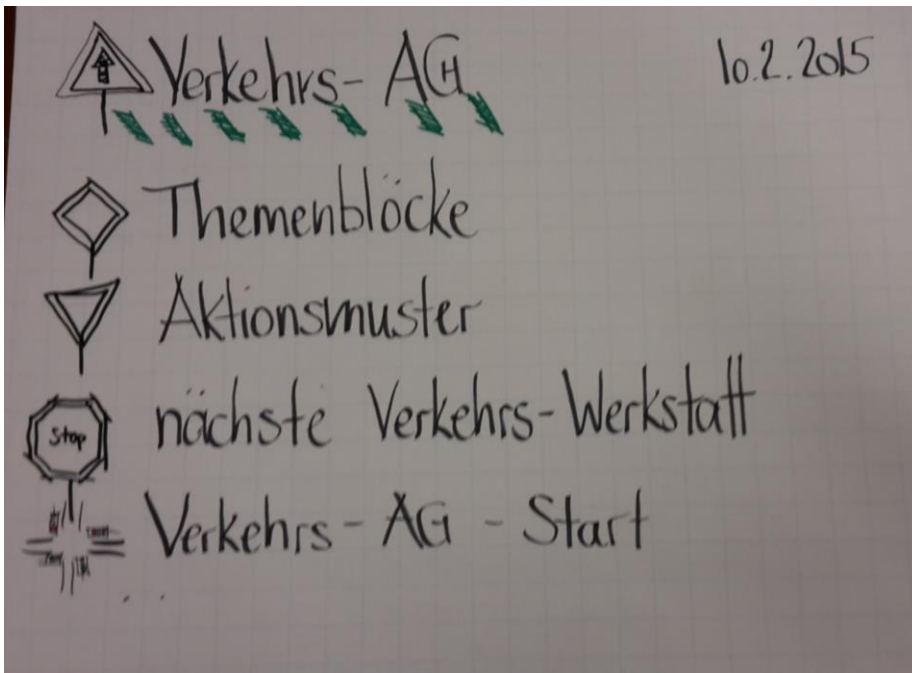 Verkehrs- AG 10.2.2015
Themenblöcke
Aktionsmuster
Stop nächste Verkehrs-Werkstatt
Verkehrs- AG - Start